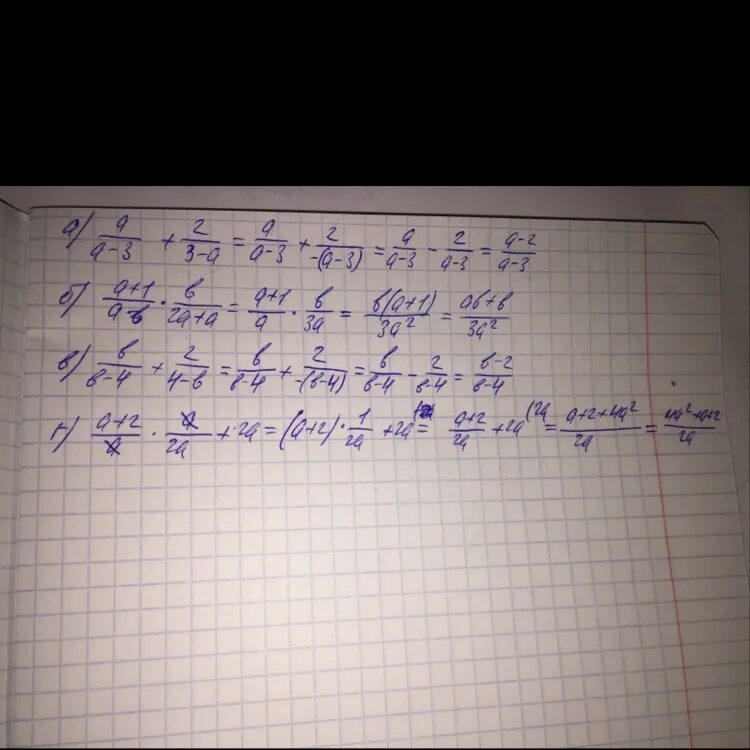 а) a/(a-3) + 2/(3-a) = a/(a-3) + 2/(-(a-3)) = a/(a-3) - 2/(a-3) = (a-2)/(a-3)
б) (a+1)/a · b/(2a+a) = (a+1)/a · b/(3a) = b(a+1)/(3a²) = (ab+b)/(3a²)
в) b/(b-4) + 2/(4-b) = b/(b-4) + 2/(-(b-4)) = b/(b-4) - 2/(b-4) = (b-2)/(b-4)
г) (a+2)/a · a/(2a) + 2a = (a+2) · 1/(2a) + 2a = (a+2)/(2a) + 2a (2a = (a+2+4a²)/(2a) = (4a²+a+2)/(2a)